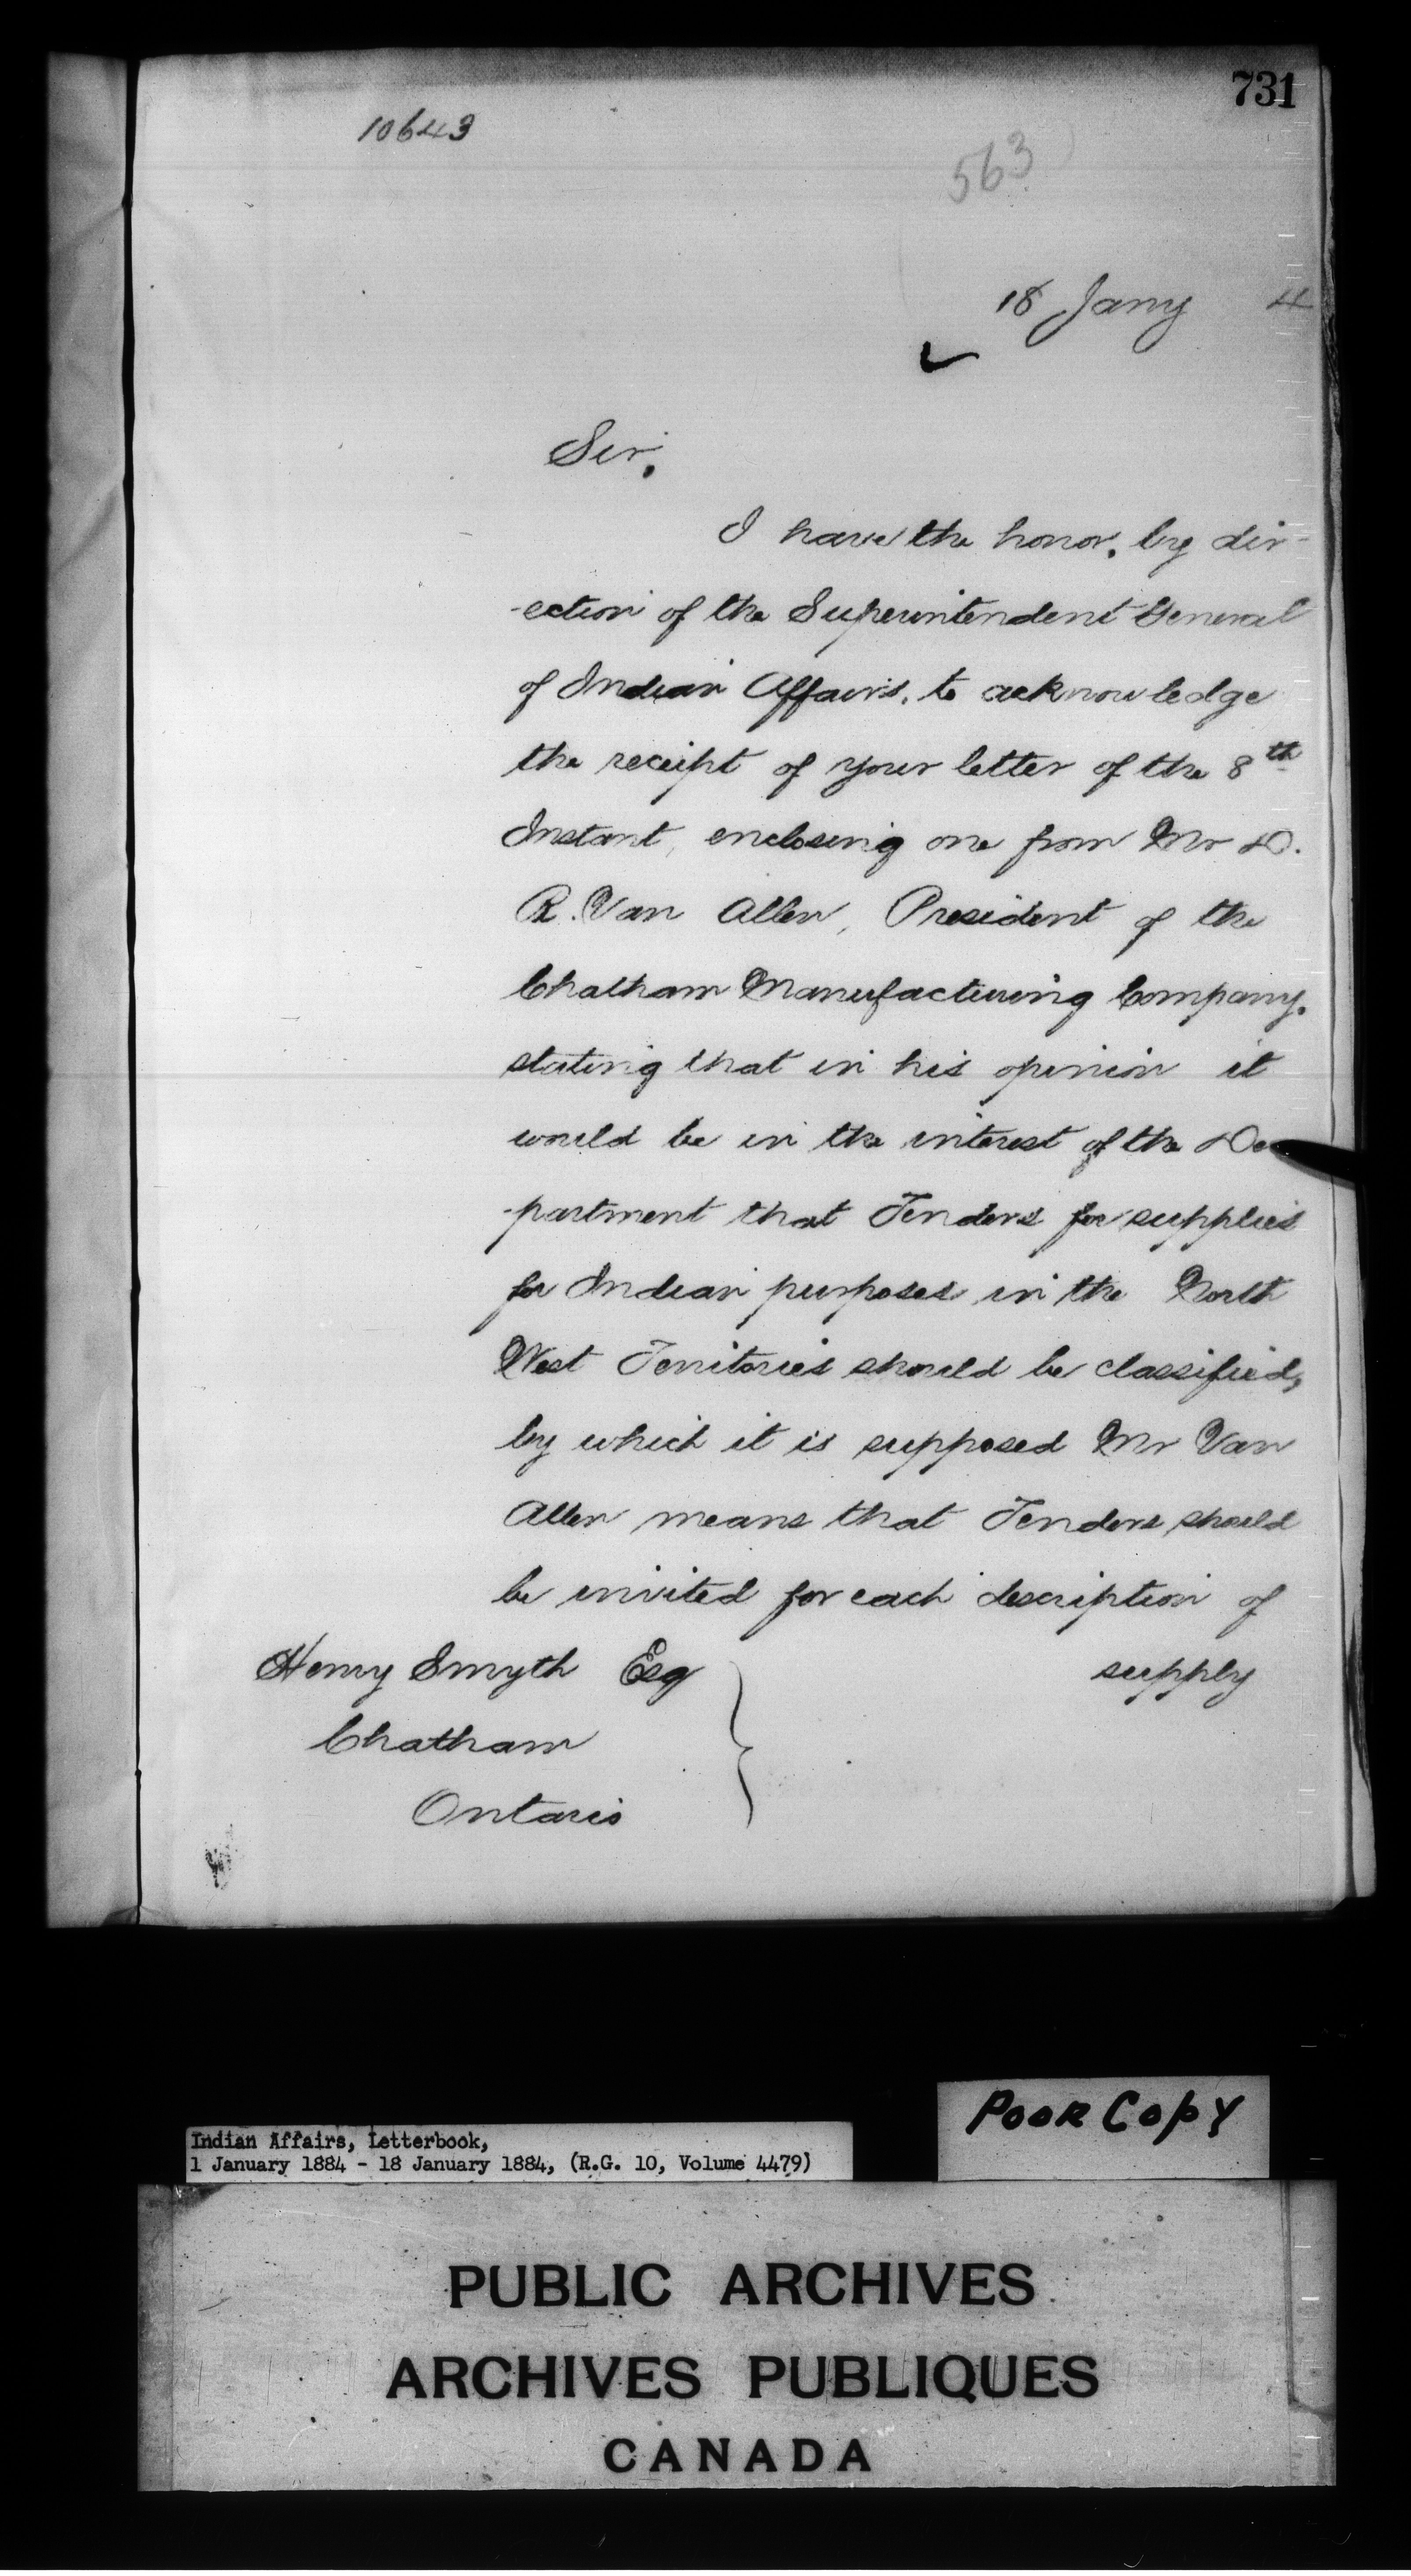 731
10643
563
18 Jany 4
Sir,
I have the honor, by dir-
-ection of the Superintendent General
of Indian Affairs, to acknowledge
the receipt of your letter of the 8th
Instant, enclosing one from Mr D.
R. Van Allen, President of the
Chatham Manufacturing Company,
stating that in his opinion it
would be in the interest of the De
-partment that Tenders for supplies
for Indian purposes in the North
West Territories should be classified,
by which it is supposed Mr Van
Allen means that Tenders should
be invited for each description of
supply
Henry Smyth Esq
Chatham
Ontario
POOR COPY
Indian Affairs, Letterbook,
1 January 1884 - 18 January 1884, (R.G. 10, Volume 4479)
PUBLIC ARCHIVES
ARCHIVES PUBLIQUES
CANADA